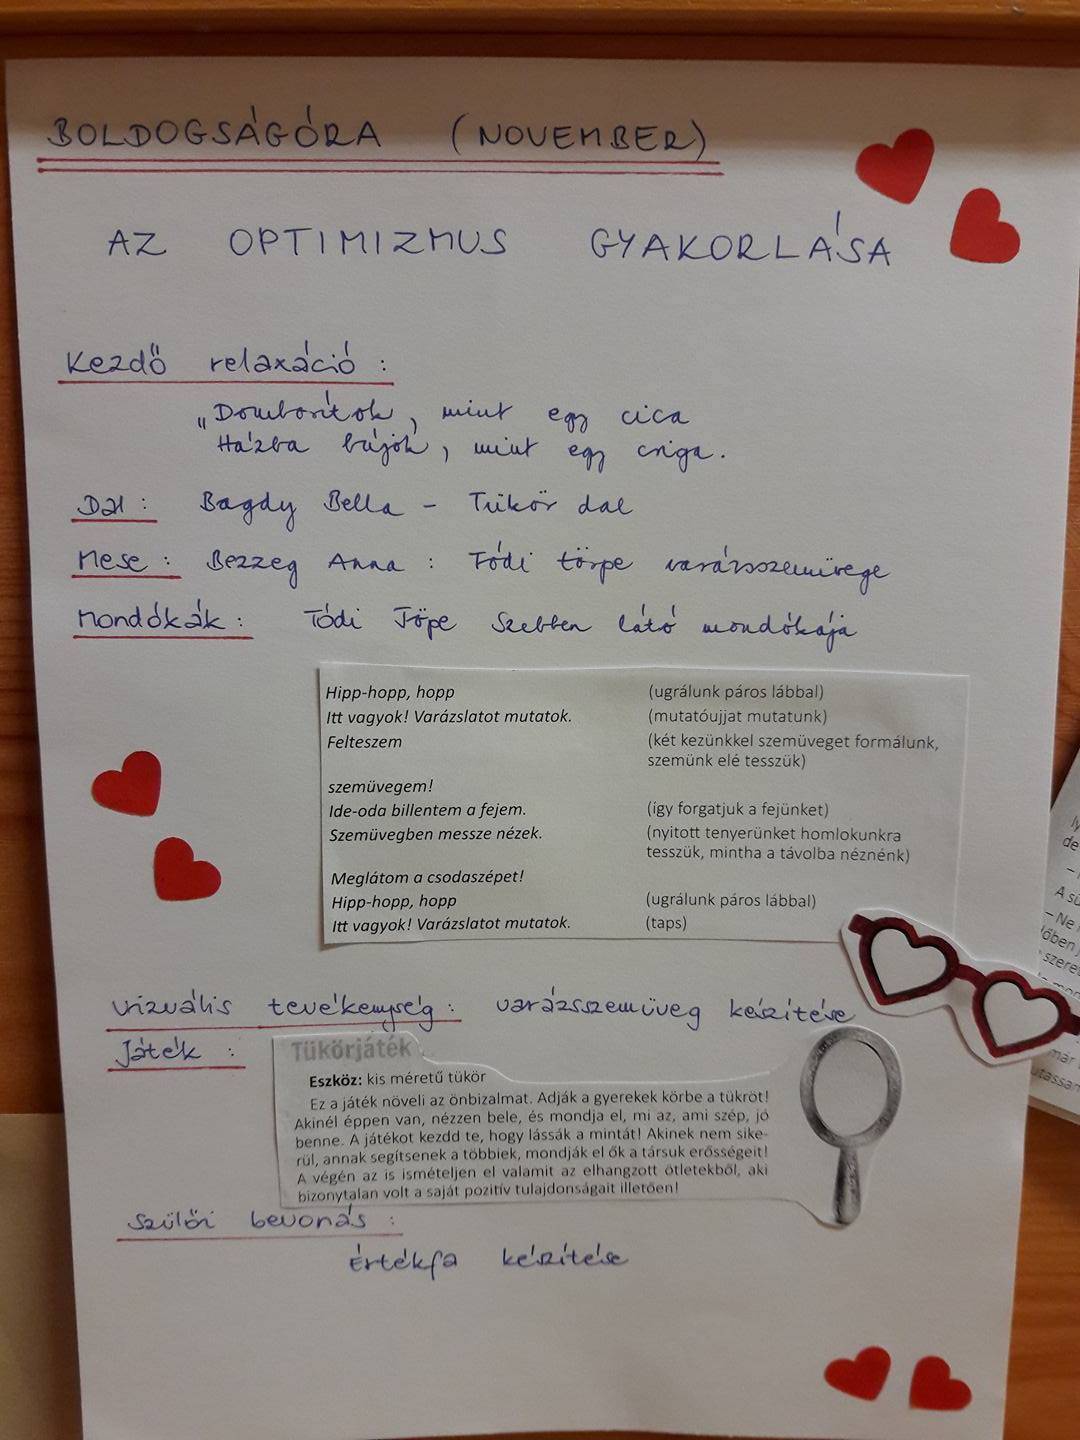 BOLDOGSÁGÓRA (NOVEMBER)
AZ OPTIMIZMUS GYAKORLÁSA
Kezdő relaxáció :
„Domborítok, mint egy cica
Házba bújok, mint egy csiga.
Dal : Bagdy Bella – Tükör dal
Mese : Bezzeg Anna : Tódi törpe varázsszemüvege
Mondókák : Tódi Töpe Szebben látó mondókája
Hipp-hopp, hopp (ugrálunk páros lábbal)
Itt vagyok! Varázslatot mutatok. (mutatóujjat mutatunk)
Felteszem (két kezünkkel szemüveget formálunk,
szemünk elé tesszük)
szemüvegem!
Ide-oda billentem a fejem. (így forgatjuk a fejünket)
Szemüvegben messze nézek. (nyitott tenyerünket homlokunkra
tesszük, mintha a távolba néznénk)
Meglátom a csodaszépet!
Hipp-hopp, hopp (ugrálunk páros lábbal)
Itt vagyok! Varázslatot mutatok. (taps)
Vizuális tevékenység : varázsszemüveg készítése
Játék :
Tükörjáték
Eszköz: kis méretű tükör
Ez a játék növeli az önbizalmat. Adják a gyerekek körbe a tükröt!
Akinél éppen van, nézzen bele, és mondja el, mi az, ami szép, jó
benne. A játékot kezdd te, hogy lássák a mintát! Akinek nem sike-
rül, annak segítsenek a többiek, mondják el ők a társuk erősségeit!
A végén az is ismételjen el valamit az elhangzott ötletekből, aki
bizonytalan volt a saját pozitív tulajdonságait illetően!
Szülői bevonás :
Értékfa készítése